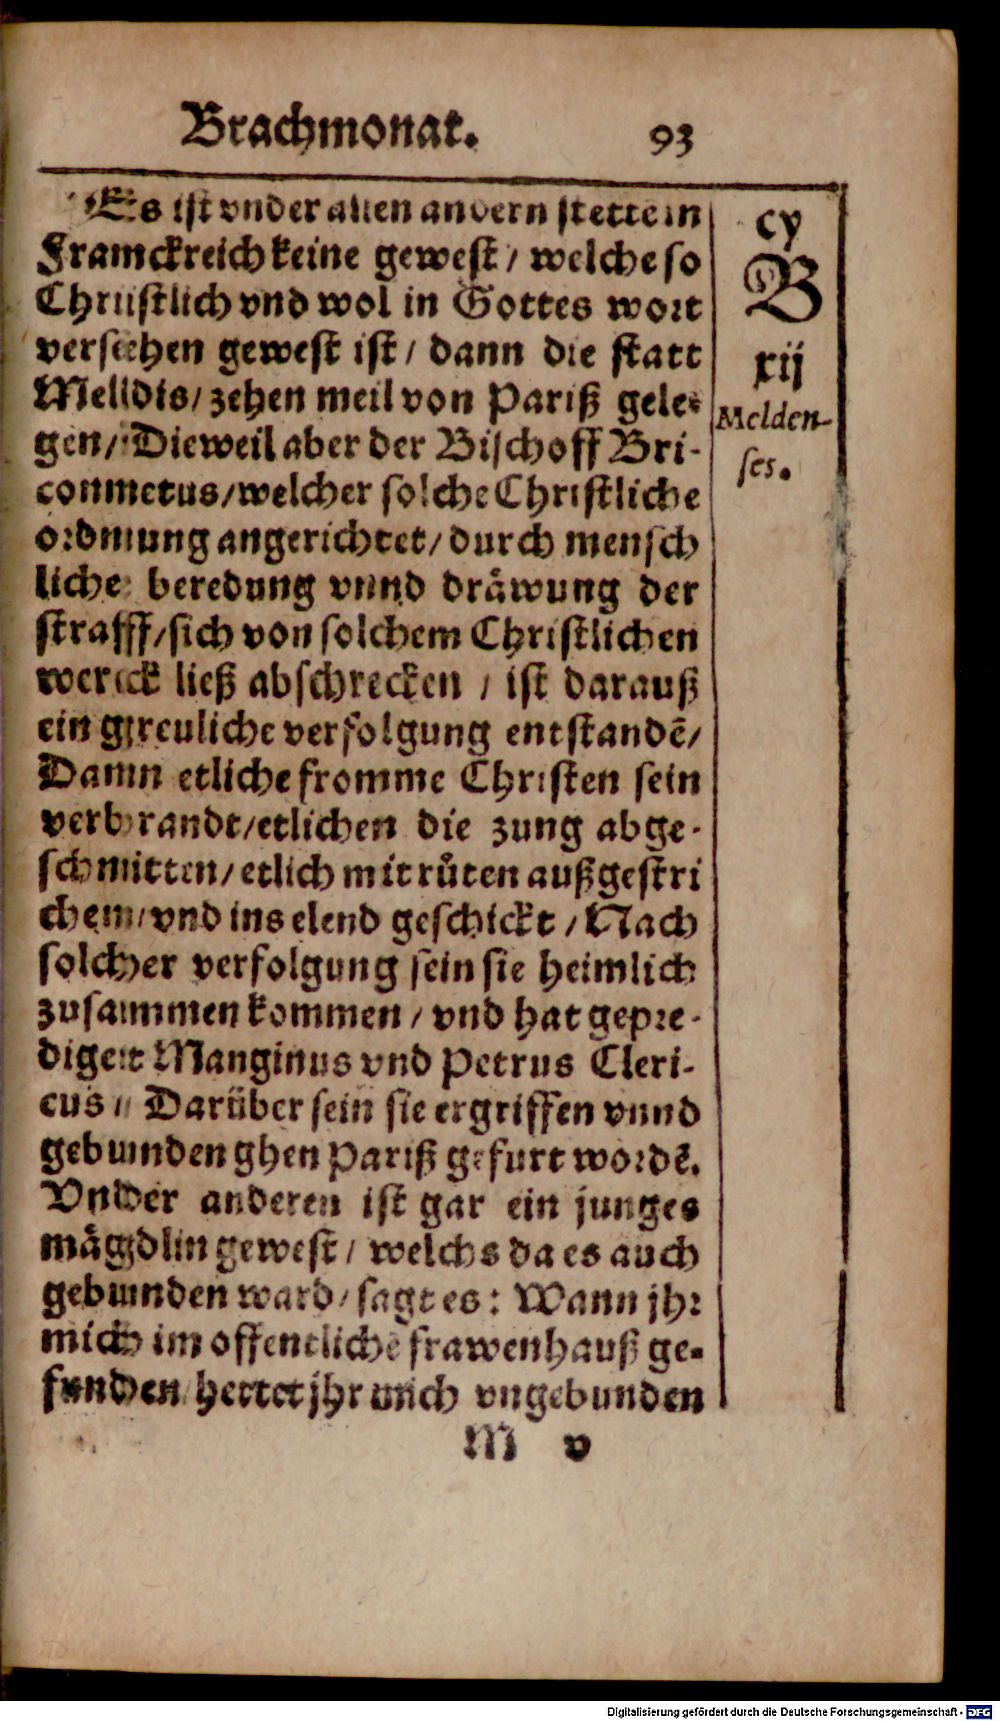 Brachmonat. 93
Es ist vnder allen andern stette in
Franckreich keine gewest / welche so
Christlich vnd wol in Gottes wort
versehen gewest ist / dann die statt
Melldis / zehen meil von Pariß gele-
gen / Dieweil aber der Bischoff Bri-
connetus / welcher solche Christliche
ordnung angerichtet / durch mensch
liche beredung vnnd dräwung der
straff / sich von solchem Christlichen
werck ließ abschrecken / ist darauß
ein greuliche verfolgung entstandē /
Dann etliche fromme Christen sein
verbrandt / etlichen die zung abge-
schnitten / etlich mit růten außgestri
chen / vnd ins elend geschickt / Nach
solcher verfolgung sein sie heimlich
zusammen kommen / vnd hat gepre-
diget Manginus vnd Petrus Cleri-
cus / Darüber sein sie ergriffen vnnd
gebunden ghen Pariß gefurt wordē.
Vnder anderen ist gar ein junges
mägdlin gewest / welchs da es auch
gebunden ward / sagt es : Wann jhr
mich im offentlichē frawenhauß ge-
funden / hettet jhr mich vngebunden
M v
cv
B
xij
Melden-
ses.
Digitalisierung gefördert durch die Deutsche Forschungsgemeinschaft - DFG